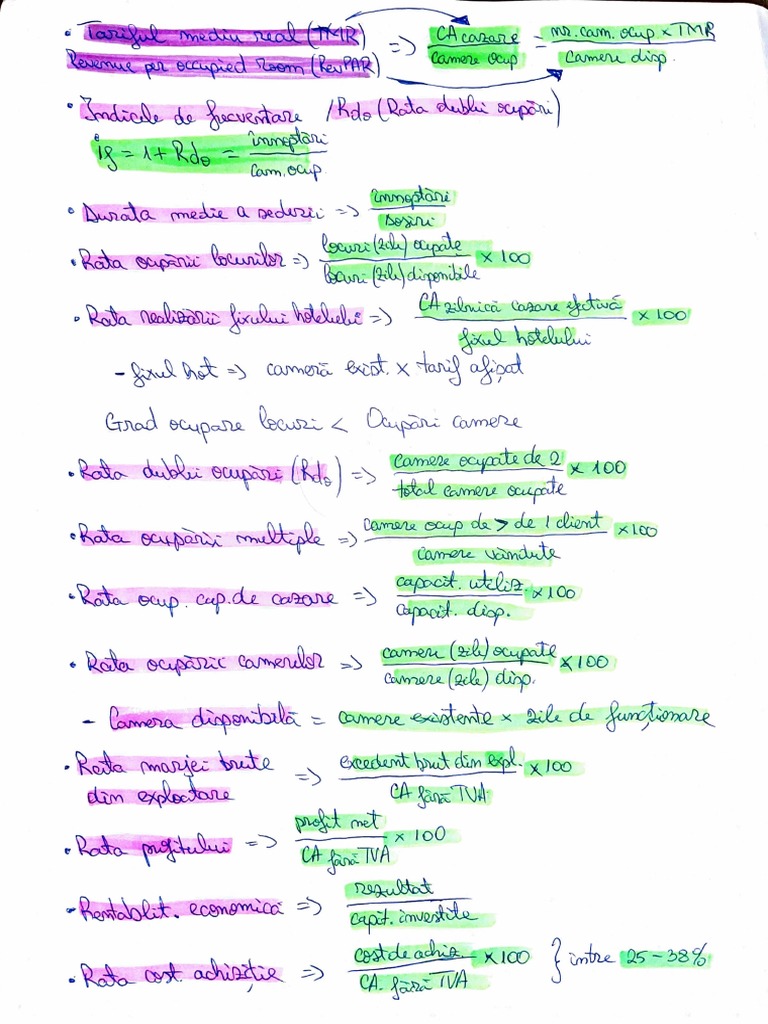 • Tariful mediu real (TMR) => CA cazare / camere ocup = nr. cam. ocup x TMR / camere disp.
Revenue per occupied Room (RevPAR)
• Indicele de frecventare / Rdo (Rata dublei ocupări)
If = 1 + Rdo = înnoptări / cam. ocup
• Durata medie a sederii => înnoptări / sosiri
• Rata ocupării locurilor => locuri (zile) ocupate / locuri (zile) disponibile x 100
• Rata realizării fixului hotelului => CA zilnică cazare efectivă / fixul hotelului x 100
- fixul hot => cameră exist. x tarif afișat
Grad ocupare locuri < Ocupări camere
• Rata dublei ocupări (Rdo) => camere ocupate de 2 / total camere ocupate x 100
• Rata ocupării multiple => camere ocup de > de 1 client / camere vândute x100
• Rata ocup. cap. de cazare => capacit. utiliz. / capacit. disp. x100
• Rata ocupării camerelor => camere (zile) ocupate / camere (zile) disp. x100
- Camera disponibilă = camere existente x zile de funcționare
• Rata marjei brute => excedent brut din expl. / CA fără TVA x100
din exploatare
• Rata profitului => profit net / CA fără TVA x 100
- Rentabilit. economică => rezultat / capit. investite
• Rata cost. achiziție => cost de achiz / CA. fără TVA x100 } între 25-38%